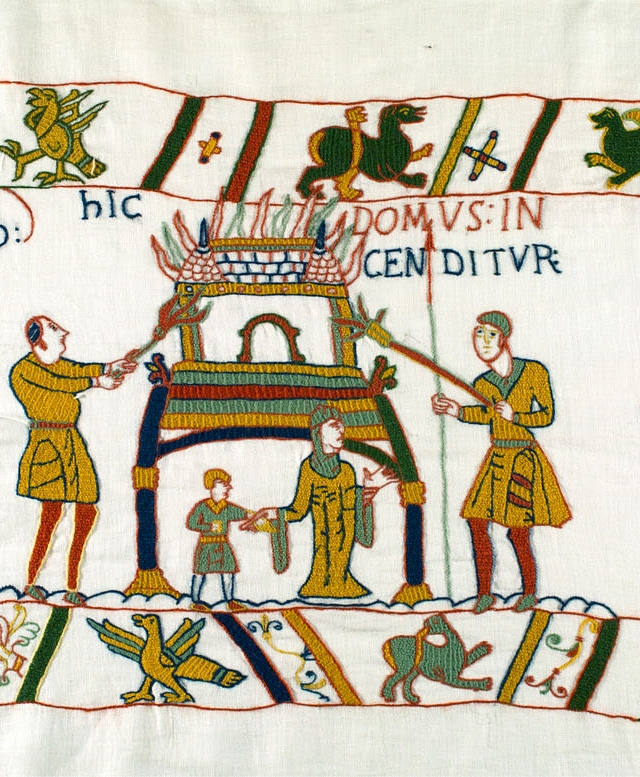 hIC DOMVS:IN
CENDITVR: